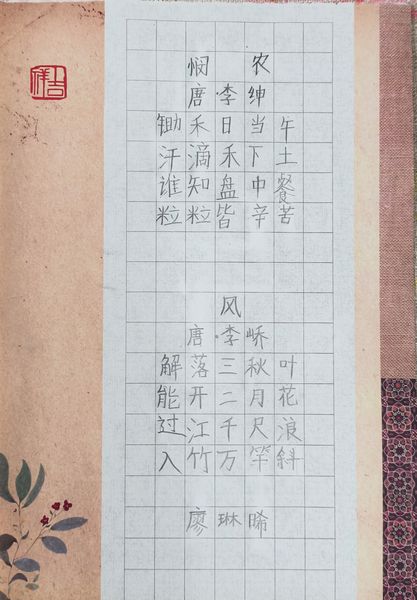 吉祥
悯农
唐·李绅
锄禾日当午
汗滴禾下土
谁知盘中餐
粒粒皆辛苦
风
唐·李峤
解落三秋叶
能开二月花
过江千尺浪
入竹万竿斜
廖琳晞